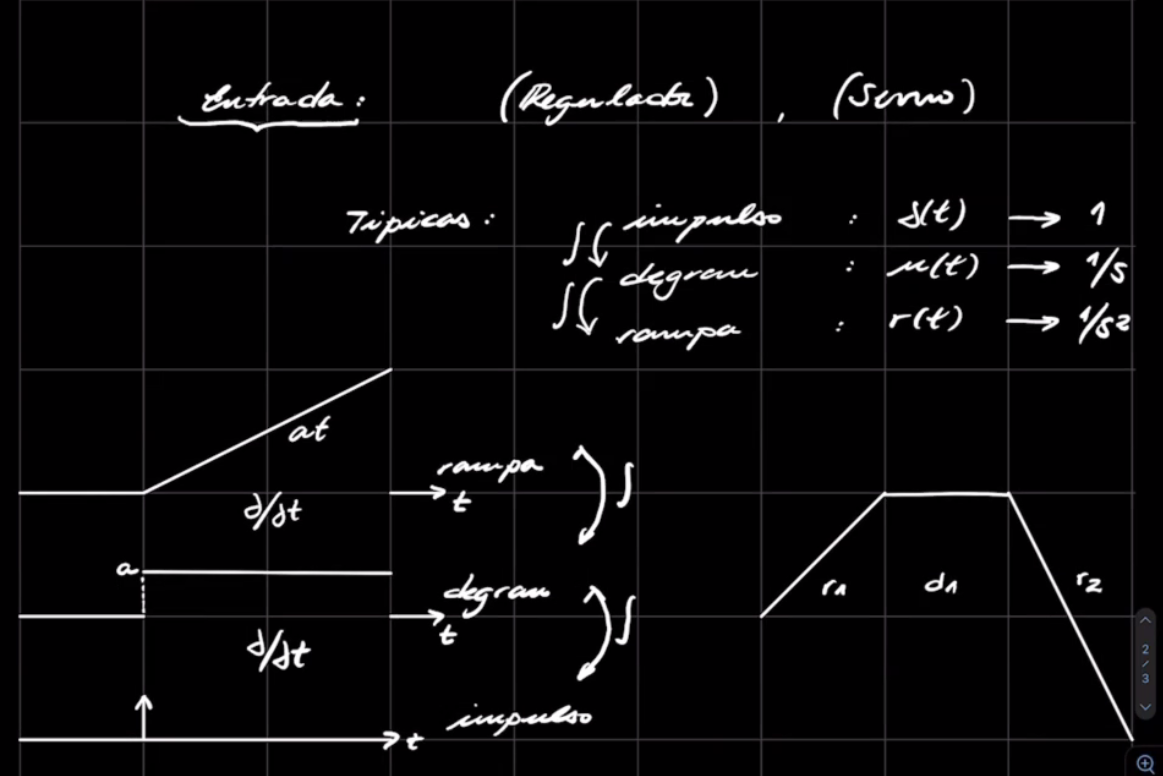 Entrada : (Regulador) , (Servo)
Tipicas : ∫ impulso : δ(t) → 1
∫ degrau : u(t) → 1/s
rampa : r(t) → 1/s2
at
rampa ∫
t
d/dt
a
degrau ∫
t
d/dt
impulso
t
r1 d1 r2
2
/
3